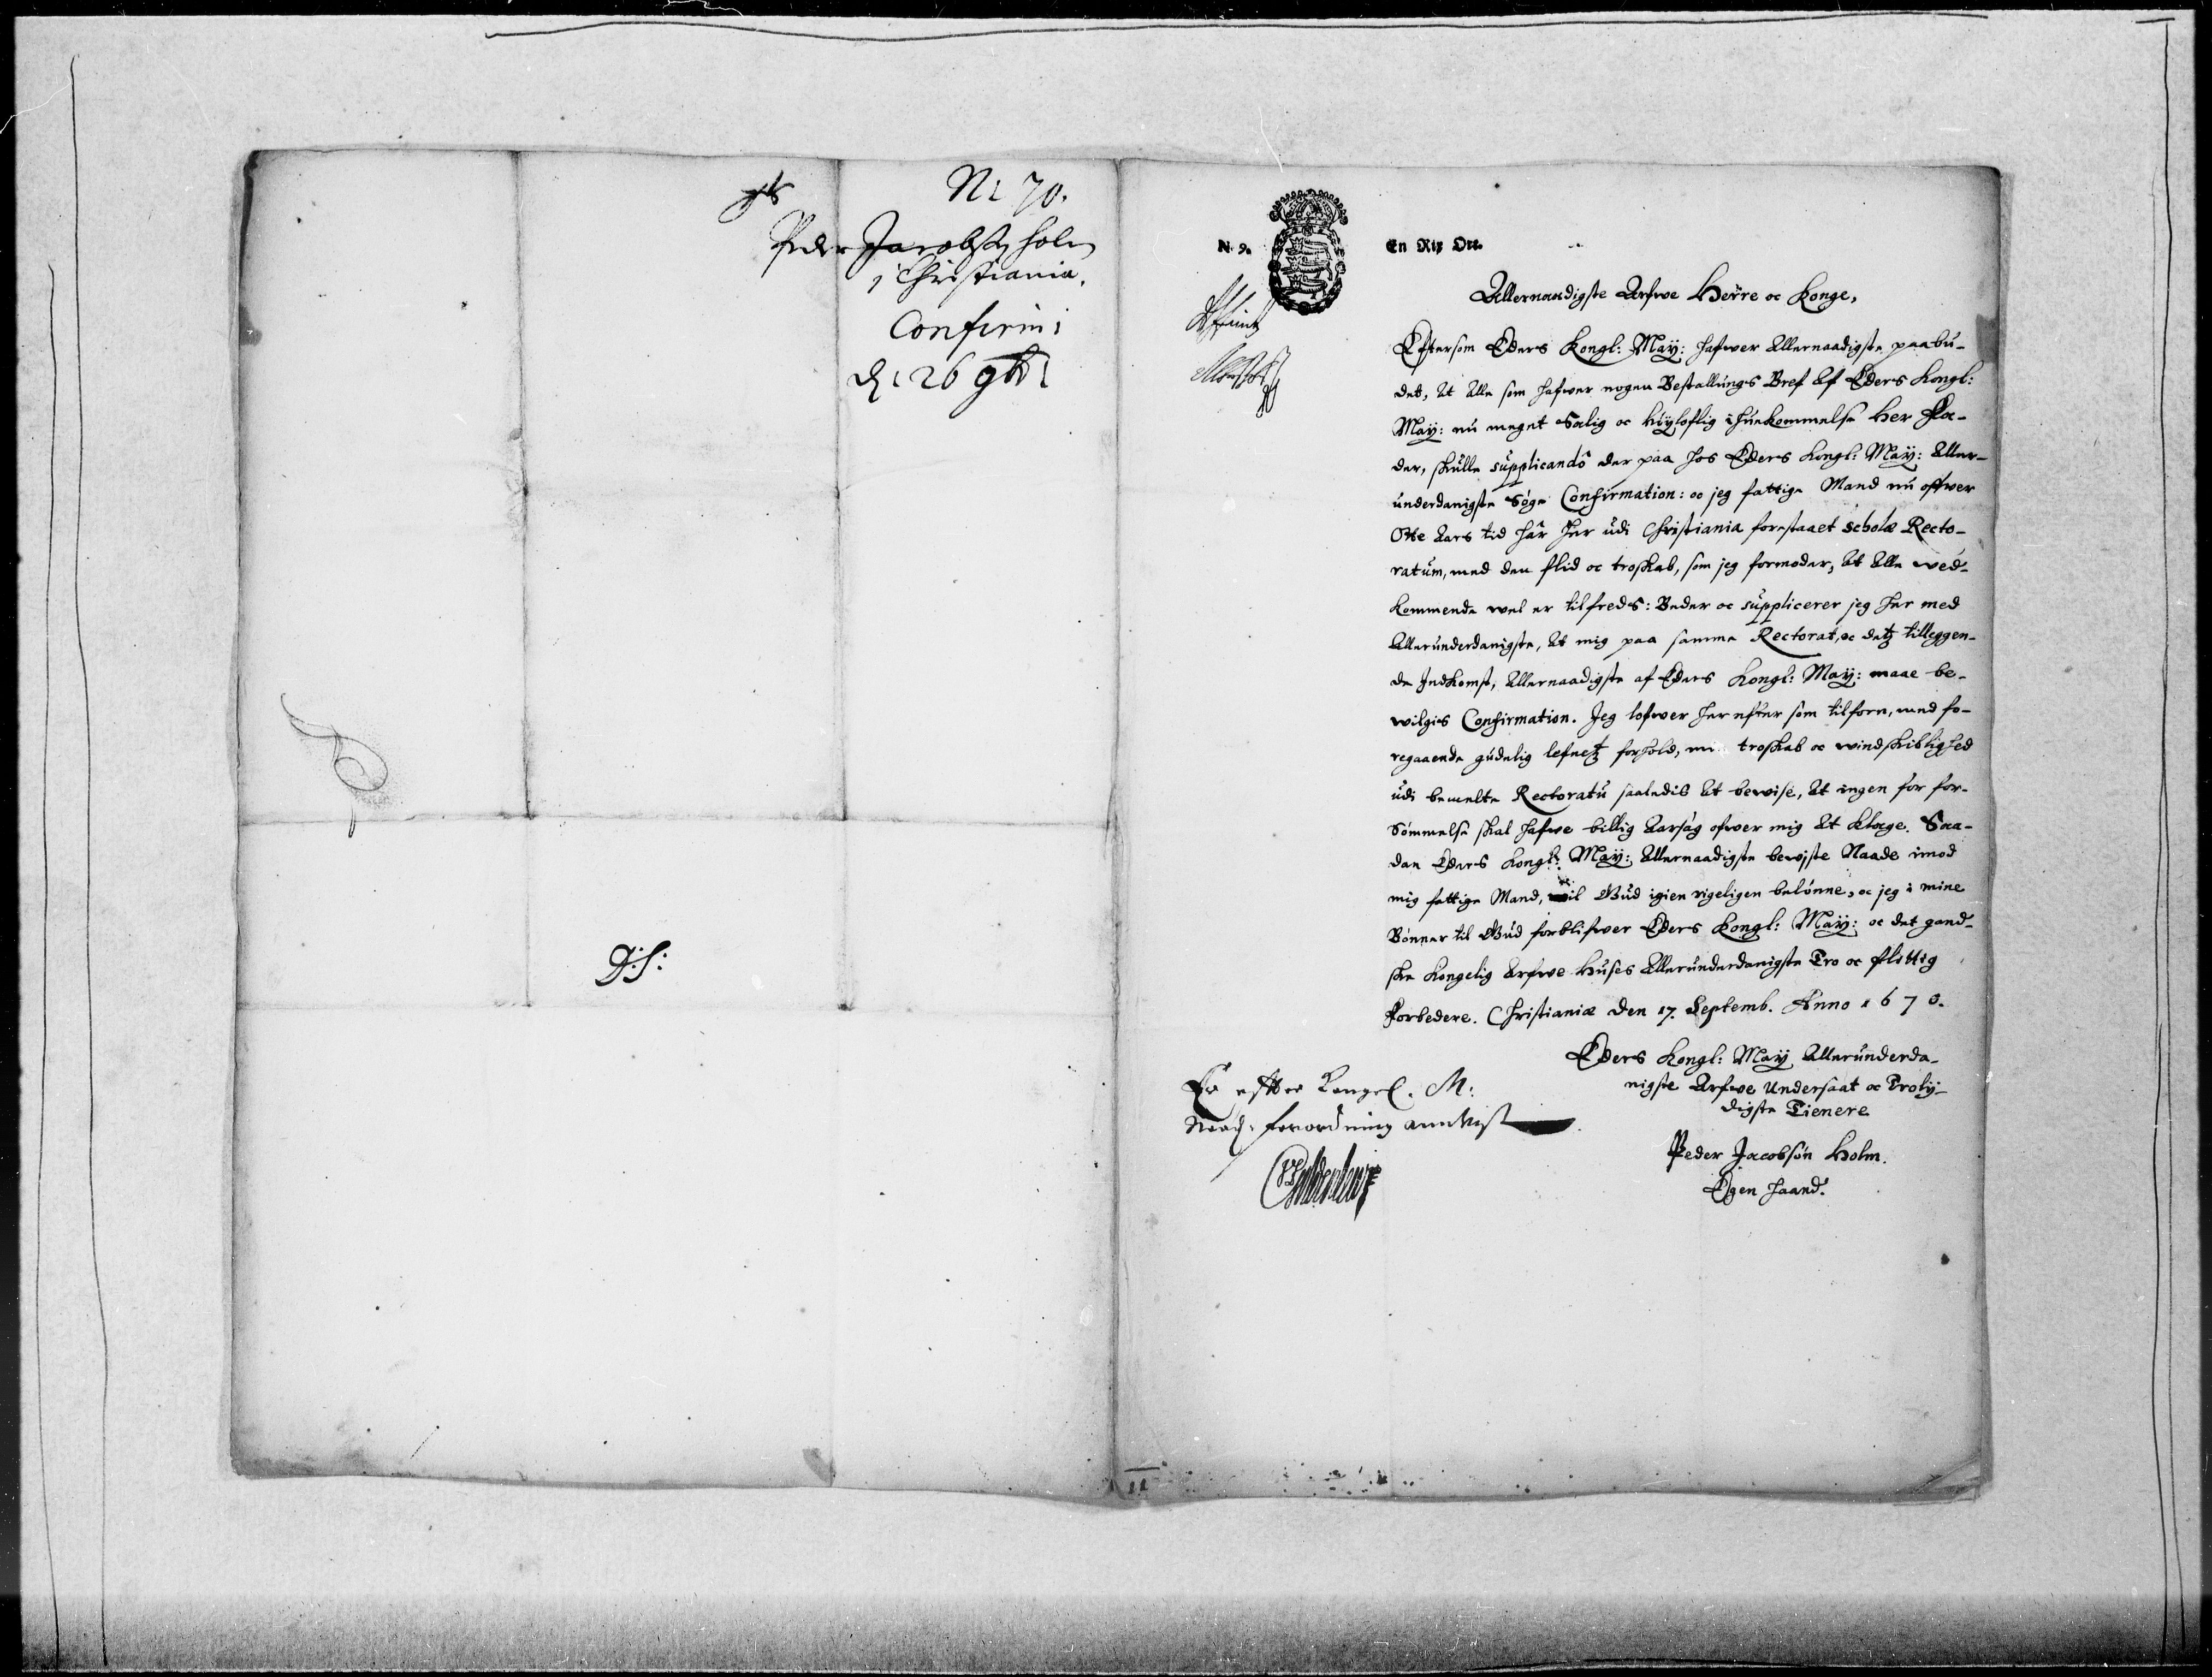 N: 70.
Peder Jacobsen Holm
i Christiania.
Confirm:
d: 26 9br:
D:S:
N. 9.
En Rix Ort.
Allernaadigste Arfwe Herre oc Konge,
Eftersom Eders Kongl: May: hafwer Allernaadigste paabu-
det, At Alle som hafwer nogen Bestallings Bref Af Eders Kongl:
May: nu meget Salig oc høyloflig ihuekommelse Her Fa-
der, skulle supplicandô der paa hos Eders Kongl: May: Aller-
underdanigste Søge Confirmation: oc jeg fattige Mand nu offwer
Otte Aars tid hâr her udi Christiania forestaaet scholæ Recto-
ratum, med den flid oc troskab, som jeg formoder, At Alle wed-
kommende wel er tilfreds: Beder oc supplicerer jeg her med
Allerunderdanigste, At mig paa samme Rectorat, oc detz tilleggen-
de Indkomst, Allernaadigste af Eders Kongl: May: maae be-
wilgis Confirmation. Jeg lofwer her efter som tilforn, med fo-
regaaende gudelig lefnetz forhold, min troskab oc windskiblighed
udi bemelte Rectoratu saaledis At bewise, At ingen for for-
Sömmelse skal hafwe billig Aarsag ofwer mig At klage. Saa-
dan Eders Kongl: May: Allernaadigste bewiste Naade imod
mig fattige Mand, wil Gud igien rigeligen belönne, oc jeg i mine
Bönner til Gud forblifwer Eders Kongl: May: oc det gand-
ske Kongelig Arfwe Huses Allerunderdanigste Tro oc flittig
Forbedere. Christianiæ den 17. Septemb. Anno 1670.
Eders Kongl: May Allerunderda-
nigste Arfwe Undersaat oc Troly-
digste Tienere
Peder Jacobsön Holm.
Egen haand.
Er efter Kongel. M:
Naad: forordning anvist
UFGyldenlew
11